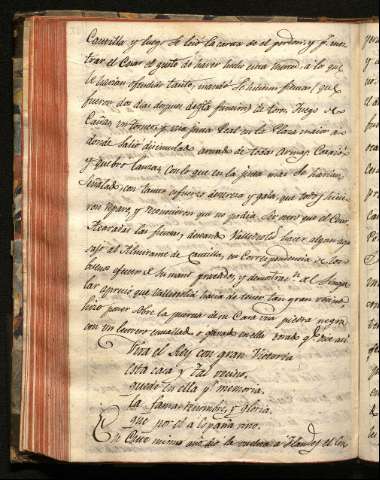 Castilla, y luego se leio la carta de el perdon; y p.ª mos
trar el Cesar el gusto de haver hecho esta merced a lo que
le havian ofendido tanto, mandò se hiciesen fiestas (que
fueron dos dias despues desta funcion) de toros, Juego de
Cañas, un torneo, y una justa Real en la Plaza maior en
donde salió disimulado armado de todas Armas, Corrió
y quebro lanzas, con lo que en la justa mas se havian
señalado, con tanto esfuerzo destreza y gala, que todos hicie
ron reparo, y reconocieron que no podia ser otro que el Cesar
Acavadas las fiestas, deseando Valladolid hacer algun aga
sajo al Almirante de Castilla, en Correspondencia de los
buenos oficios
lar aprecio que Valladolid havia de tener tan gran vecino
hizo poner sobre la puerta de su Casa una piedra negra
con un letrero entallado o gravado en ella dorado q.e dice asi
Viva el Rey con gran Victoria
esta casa y tal vecino,
quede en ella p.r memoria,
la fama renombre, y gloria,
que por el a España vino.
Este mismo año dio la vuelta a Flandes el Em